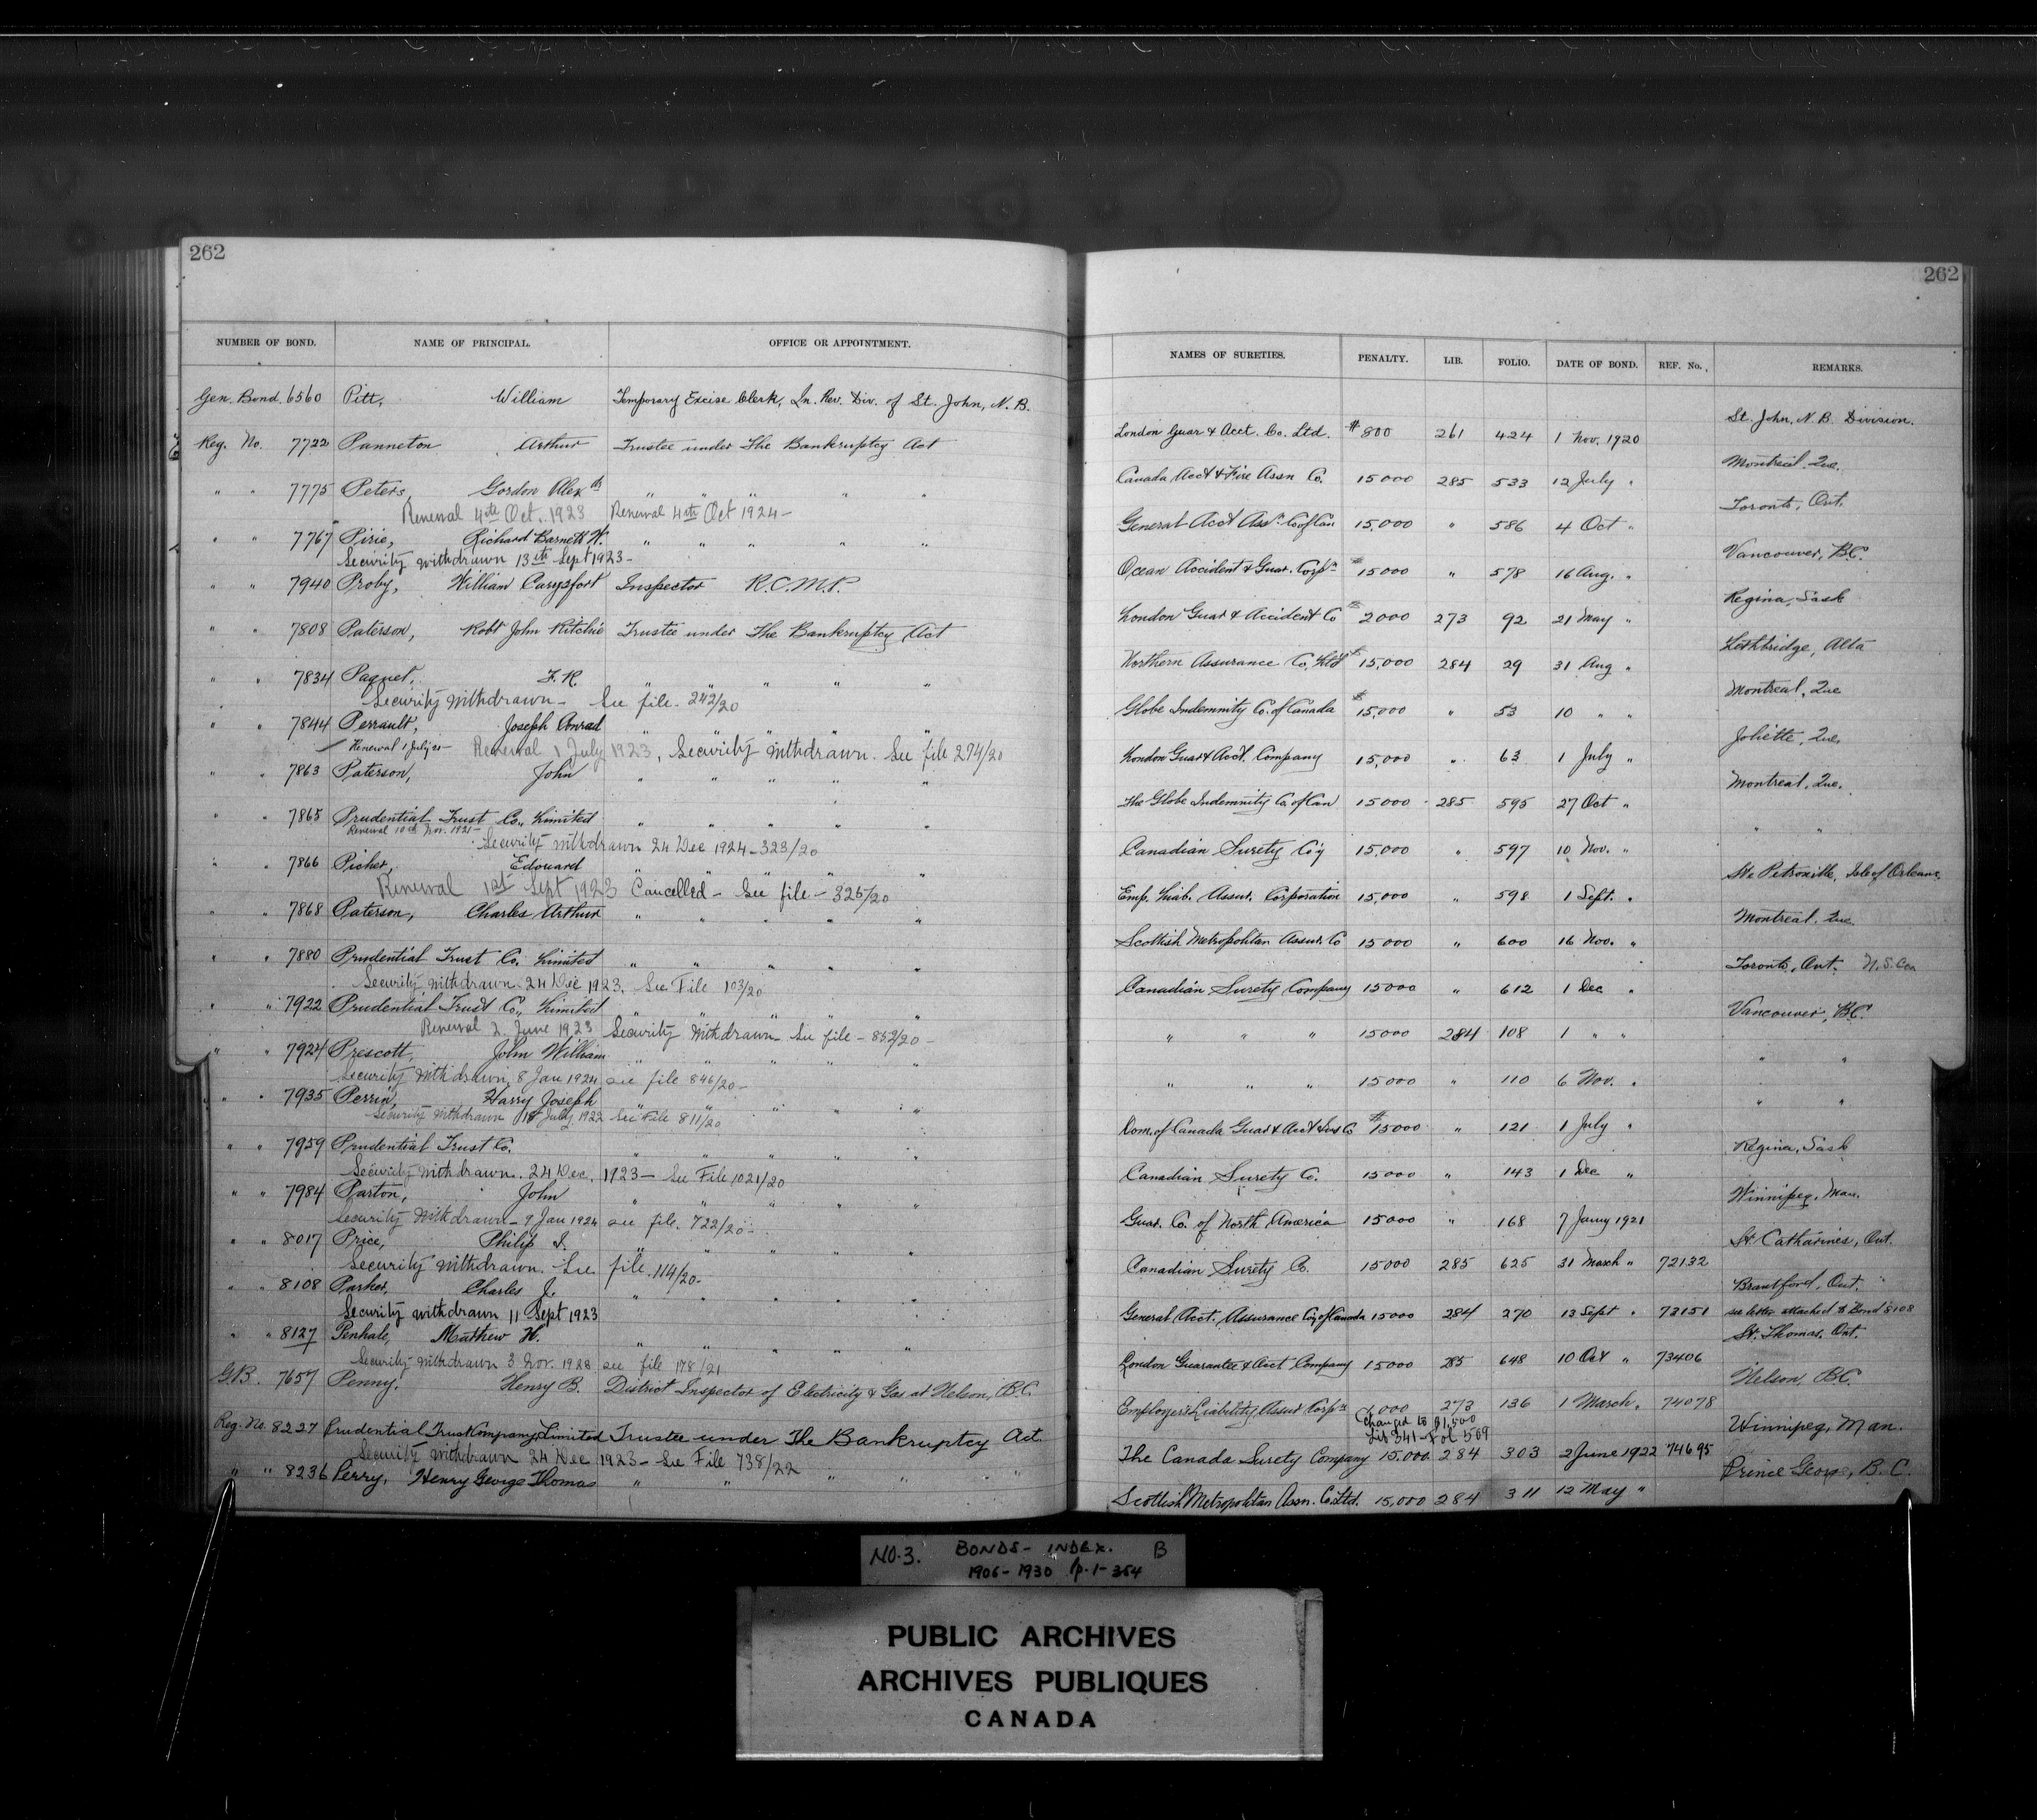 262
NUMBER OF BOND. NAME OF PRINCIPAL. OFFICE OR APPOINTMENT.
Gen. Bond. 6560 Pitt, William Temporary Excise Clerk, In. Rev. Div. of St. John, N.B.
Reg. No. 7722 Panneton Arthur Trustee under The Bankruptcy Act
" " 7775 Peters, Gordon Alex " " " " "
Renewal 4th Oct. 1923 Renewal 4th Oct 1924 -
" " 7767 Pirie, Richard Barnett W. " " " " "
Security withdrawn 13th Sept 1923 -
" " 7940 Proby, William Carysfort Inspector R.C.M.P.
" " 7808 Paterson, Robt John Ritchie Trustee under The Bankruptcy Act
" " 7834 Paquet, F.R. " " " " "
Security withdrawn - See file - 242/20
" " 7844 Perrault, Joseph Conrad " " " " "
Renewal 1 July 21 - Renewal 1 July 1923, Security withdrawn. See file 274/20
" " 7863 Paterson, John " " " " "
" " 7865 Prudential Trust Co., Limited " " " " "
Renewal 10th Nov. 1921 -
Security withdrawn 24 Dec 1924 - 323/20
" " 7866 Picher, Edouard " " " " "
Renewal 1st Sept 1923 Cancelled - See file - 325/20
" " 7868 Paterson, Charles Arthur " " " " "
" " 7880 Prudential Trust Co. Limited " " " " "
Security withdrawn. 24 Dec 1923. See File 103/20
" " 7922 Prudential Trust Co., Limited " " " " "
Renewal 2 June 1923 Security Withdrawn - See file - 852/20 -
" " 7924 Prescott, John William " " " " "
Security withdrawn, 8 Jan 1924 see file 846/20 -
" " 7935 Perrin, Harry Joseph " " " " "
Security withdrawn 18 July 1922 See File 811/20
" " 7959 Prudential Trust Co. " " " " "
Security withdrawn. 24 Dec. 1923 - See File 1021/20
" " 7984 Parton, John " " " " "
Security Withdrawn - 9 Jan 1924 see file. 722/20 -
" " 8017 Price, Philip I. " " " " "
Security withdrawn. See file. 114/20 -
" " 8108 Parker, Charles J. " " " " "
Security withdrawn 11 Sept 1923
" " 8127 Penhale, Mathew H. " " " " "
Security withdrawn 3 Nov. 1928 see file 178/21
G.B. 7657 Penny, Henry B. District Inspector of Electricity & Gas at Nelson, B.C.
Reg. No. 8227 Prudential Trust Company, Limited Trustee under The Bankruptcy Act.
Security withdrawn 24 Dec 1923 - See File 738/22
" " 8236 Perry, Henry George Thomas " " " " "
262
NAMES OF SURETIES. PENALTY. LIB. FOLIO. DATE OF BOND. REF. No. REMARKS.
London Guar & Acct. Co. Ltd. $800 261 424 1 Nov. 1920 St. John, N.B. Division.
Canada Acct & Fire Assn Co. 15000 285 533 12 July " Montreal, Que.
General Acct Assn Co of Can 15,000 " 586 4 Oct " Toronto, Ont.
Ocean Accident & Guar. Corpn $15000 " 578 16 Aug. " Vancouver, B.C.
London Guar & Accident Co $2000 273 92 21 May " Regina, Sask
Northern Assurance Co, Ltd $15,000 284 29 31 Aug " Lethbridge, Alta
Globe Indemnity Co. of Canada $15,000 " 53 10 " " Montreal, Que
London Guar & Acct. Company 15,000 " 63 1 July " Joliette, Que.
The Globe Indemnity Co. of Can 15000 285 595 27 Oct " Montreal, Que.
Canadian Surety Co'y 15,000 " 597 10 Nov. " " "
Emp. Liab. Assur. Corporation 15,000 " 598 1 Sept. " Ste Petronille, Isle of Orleans.
Scottish Metropolitan Assur. Co 15000 " 600 16 Nov. " Montreal. Que.
Canadian Surety Company 15000 " 612 1 Dec " Toronto, Ont.
" " " 15000 284 108 1 " " Vancouver, B.C.
" " " 15000 " 110 6 Nov. " " "
Dom. of Canada Guar & Acct Ins Co $15000 " 121 1 July " " "
Canadian Surety Co. 15000 " 143 1 Dec " Regina, Sask
Guar. Co. of North America 15000 " 168 7 Jany 1921 Winnipeg, Man.
Canadian Surety Co. 15000 285 625 31 March " 72132 St Catharines, Ont.
General Acct. Assurance Co'y of Canada 15000 284 270 13 Sept " 73151 Brantford, Ont.
see letter attached to Bond 8108
London Guarantee & Acct Company 15000 285 648 10 Oct " 73406 St. Thomas, Ont.
Employers Liability Assur Corpn 136 1 March " 74078 Nelson, B.C.
273
Changed to $1,500
Lib 341 - Fol 509
The Canada Surety Company 15,000 284 303 2 June 1922 74695 Winnipeg, Man.
Scottish Metropolitan Assn. Co. Ltd. 15,000 284 311 12 May " Prince George, B.C.
NO. 3. BONDS - INDEX. B
1906 - 1930 p. 1 - 354
PUBLIC ARCHIVES
ARCHIVES PUBLIQUES
CANADA